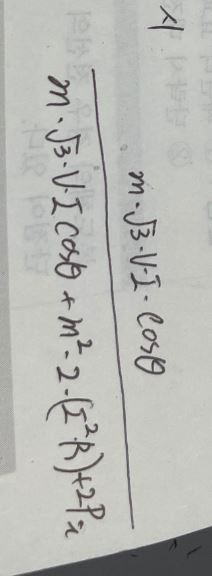 m·√3·V·I·cosθ
m·√3·V·I cosθ + m²·2·(I²·R)+2Pi